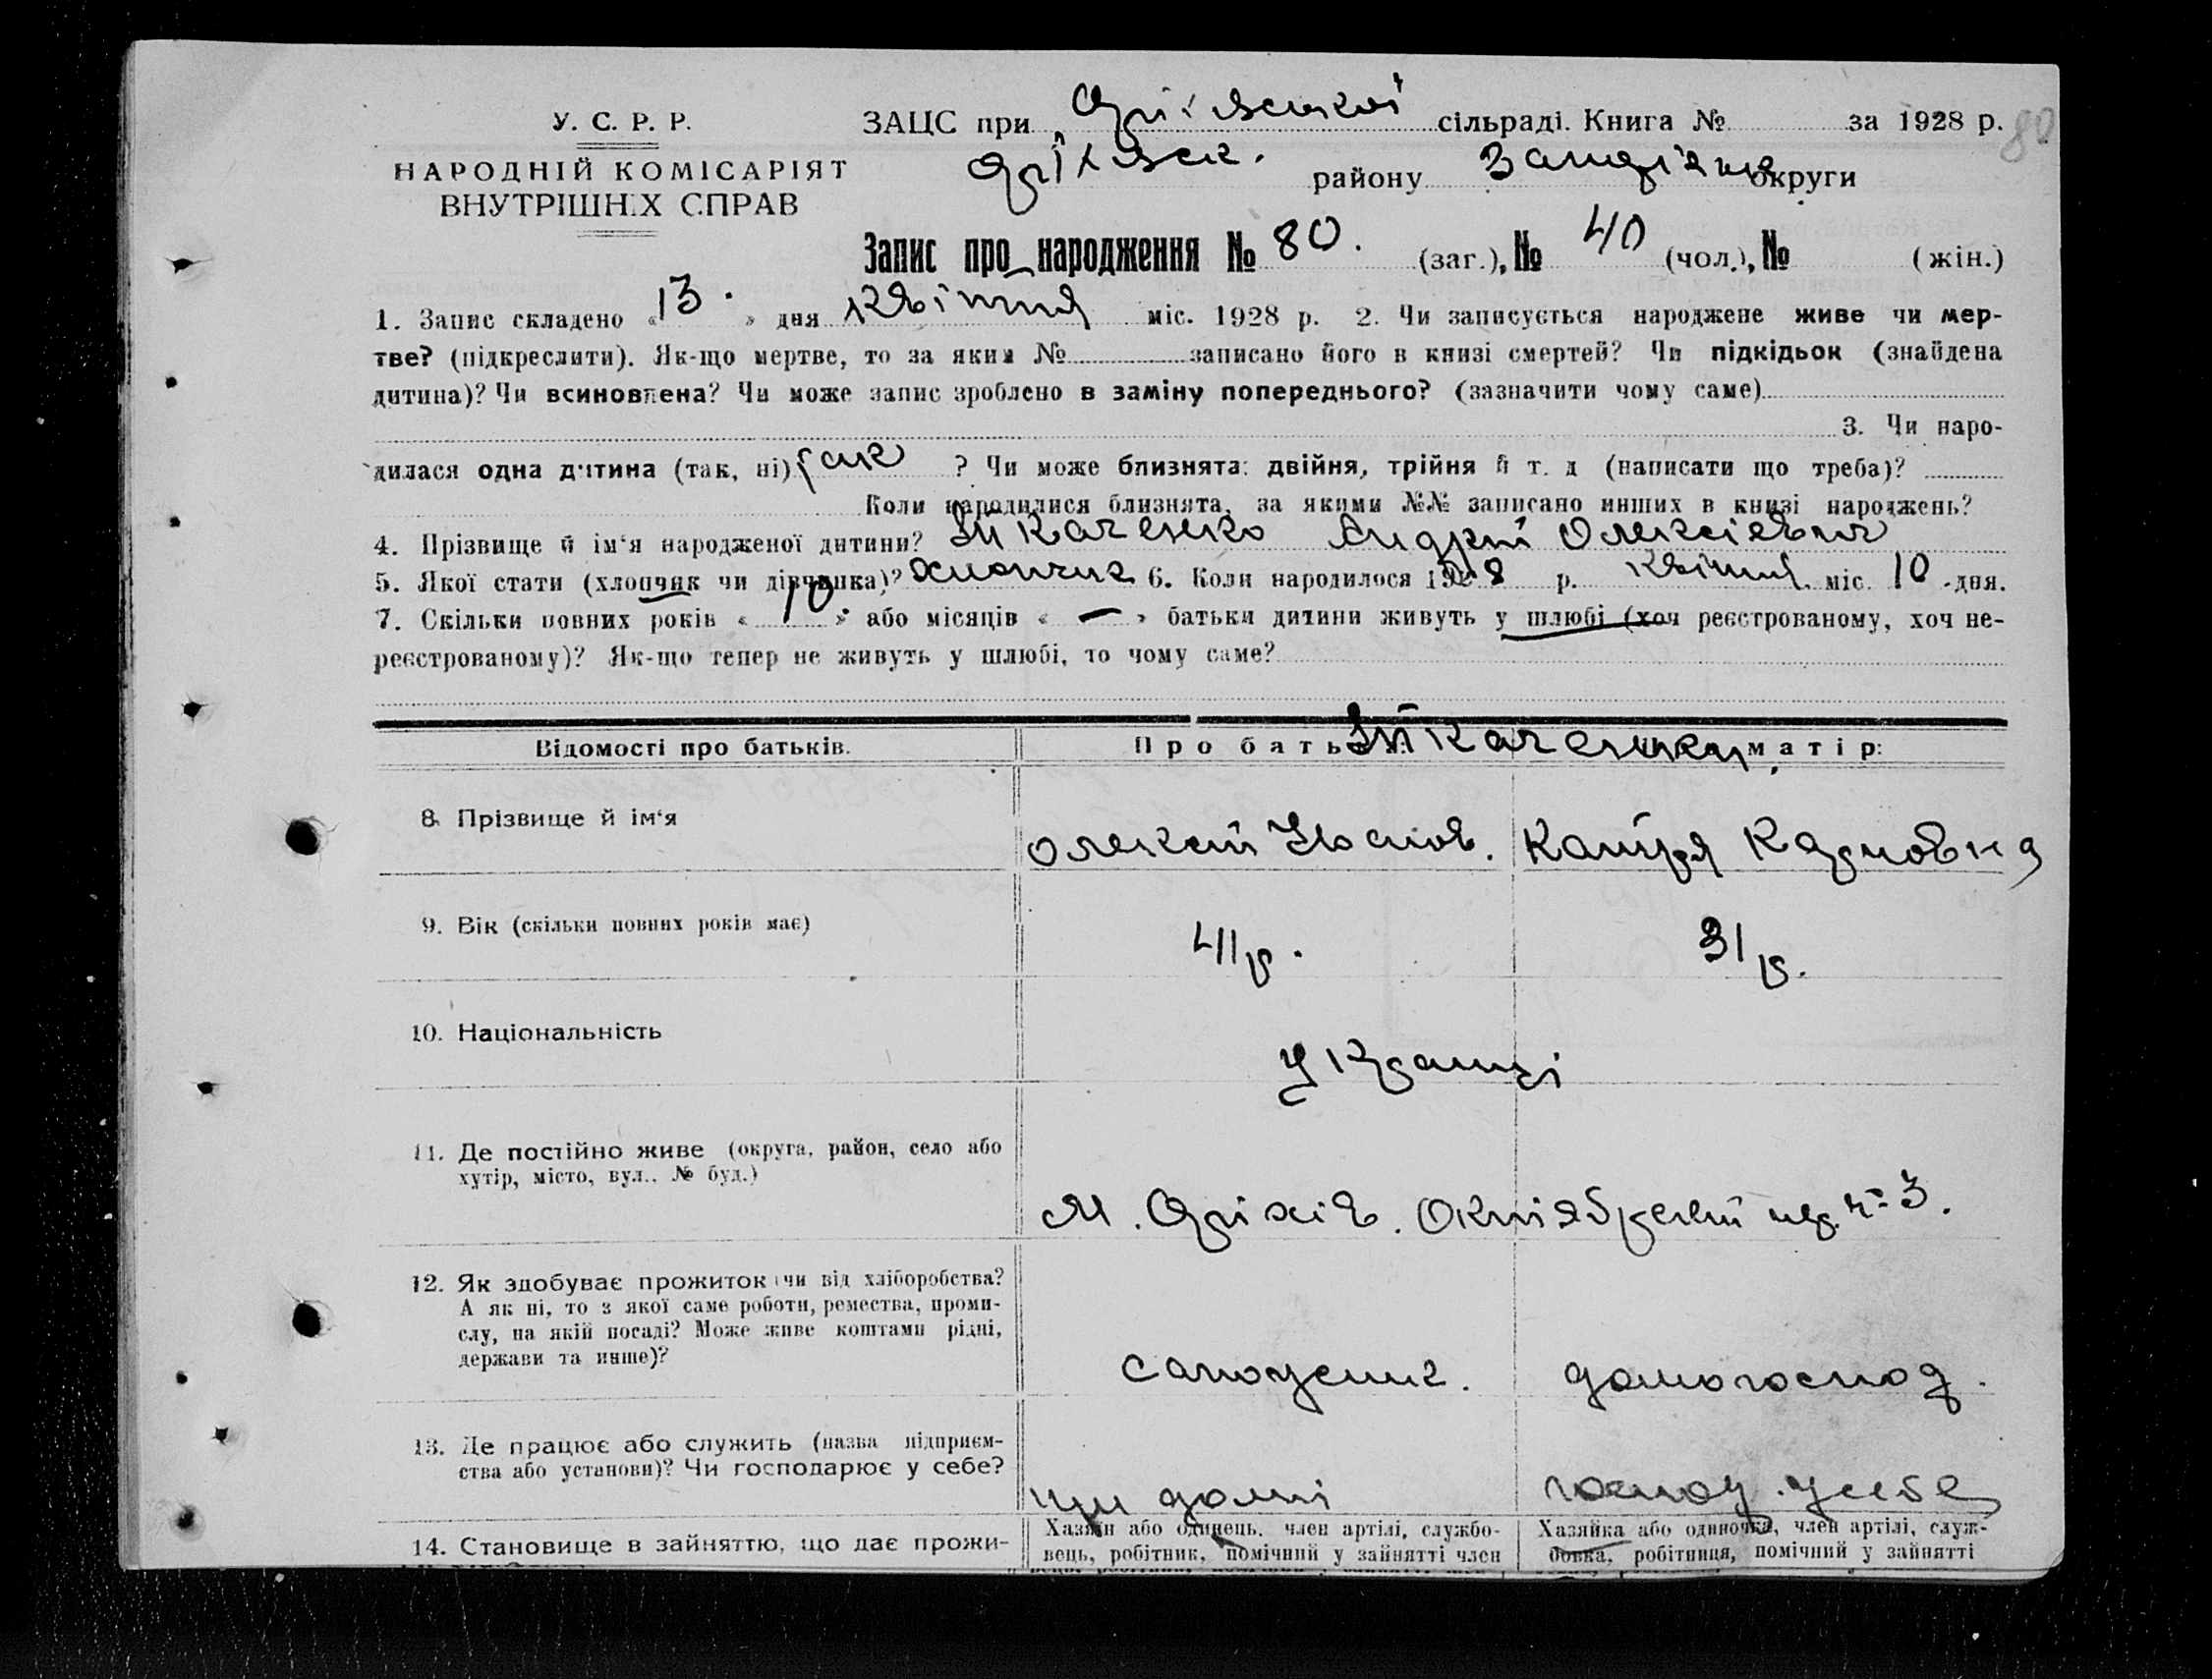 У. С. Р. Р.
НАРОДНІЙ КОМІСАРІЯТ
ВНУТРІШНІХ СПРАВ
ЗАЦС при Оріхівській сільраді. Книга № за 1928 р. 80
Оріхівск. району Запоріжж округи
Запис про народження № 80. (заг.), № 40 (чол.), № (жін.)
1. Запис складено « 13 » дня квітня міс. 1928 р. 2. Чи записується народжене живе чи мер-
тве? (підкреслити). Як-що мертве, то за яким № записано його в книзі смертей? Чи підкідьок (знайдена
дитина)? Чи всиновлена? Чи може запис зроблено в заміну попереднього? (зазначити чому саме)
3. Чи наро-
дилася одна дитина (так, ні) так ? Чи може близнята: двійня, трійня й т. д (написати що треба)?
Коли народилися близнята, за якими №№ записано инших в книзі народжень?
4. Прізвище й ім'я народженої дитини? Ткаченко Андрій Олексієвич
5. Якої статі (хлопчик чи дівчинка)? Хлопчик 6. Коли народилося 1928 р. квітня міс. 10 дня.
7. Скільки повних років « 10 » або місяців « — » батьки дитини живуть у шлюбі (хоч реєстрованому, хоч не-
реєстрованому)? Як-що тепер не живуть у шлюбі, то чому саме?
Відомості про батьків. Про батька: Ткаченки матір:
8. Прізвище й ім'я Олексій Катря
9. Вік (скільки повних років має) 41 р. 31 р.
10. Національність Українці
11. Де постійно живе (округа, район, село або
хутір, місто, вул., № буд.)
м. Оріхів. Октябрський № 3.
12. Як здобуває прожиток (чи від хліборобства?
А як ні, то з якої саме роботи, ремества, проми-
слу, на якій посаді? Може живе коштами рідні,
держави та инше)?
сапожник. домогоспод.
13. Де працює або служить (назва підприєм-
ства або установи)? Чи господарює у себе?
при домі господ. у себе
14. Становище в зайняттю, що дає прожи-
Хазяїн або одинець, член артілі, службо-
вець, робітник, помічний у зайнятті член
Хазяйка або одиночка, член артілі, служ-
бовка, робітниця, помічний у зайнятті